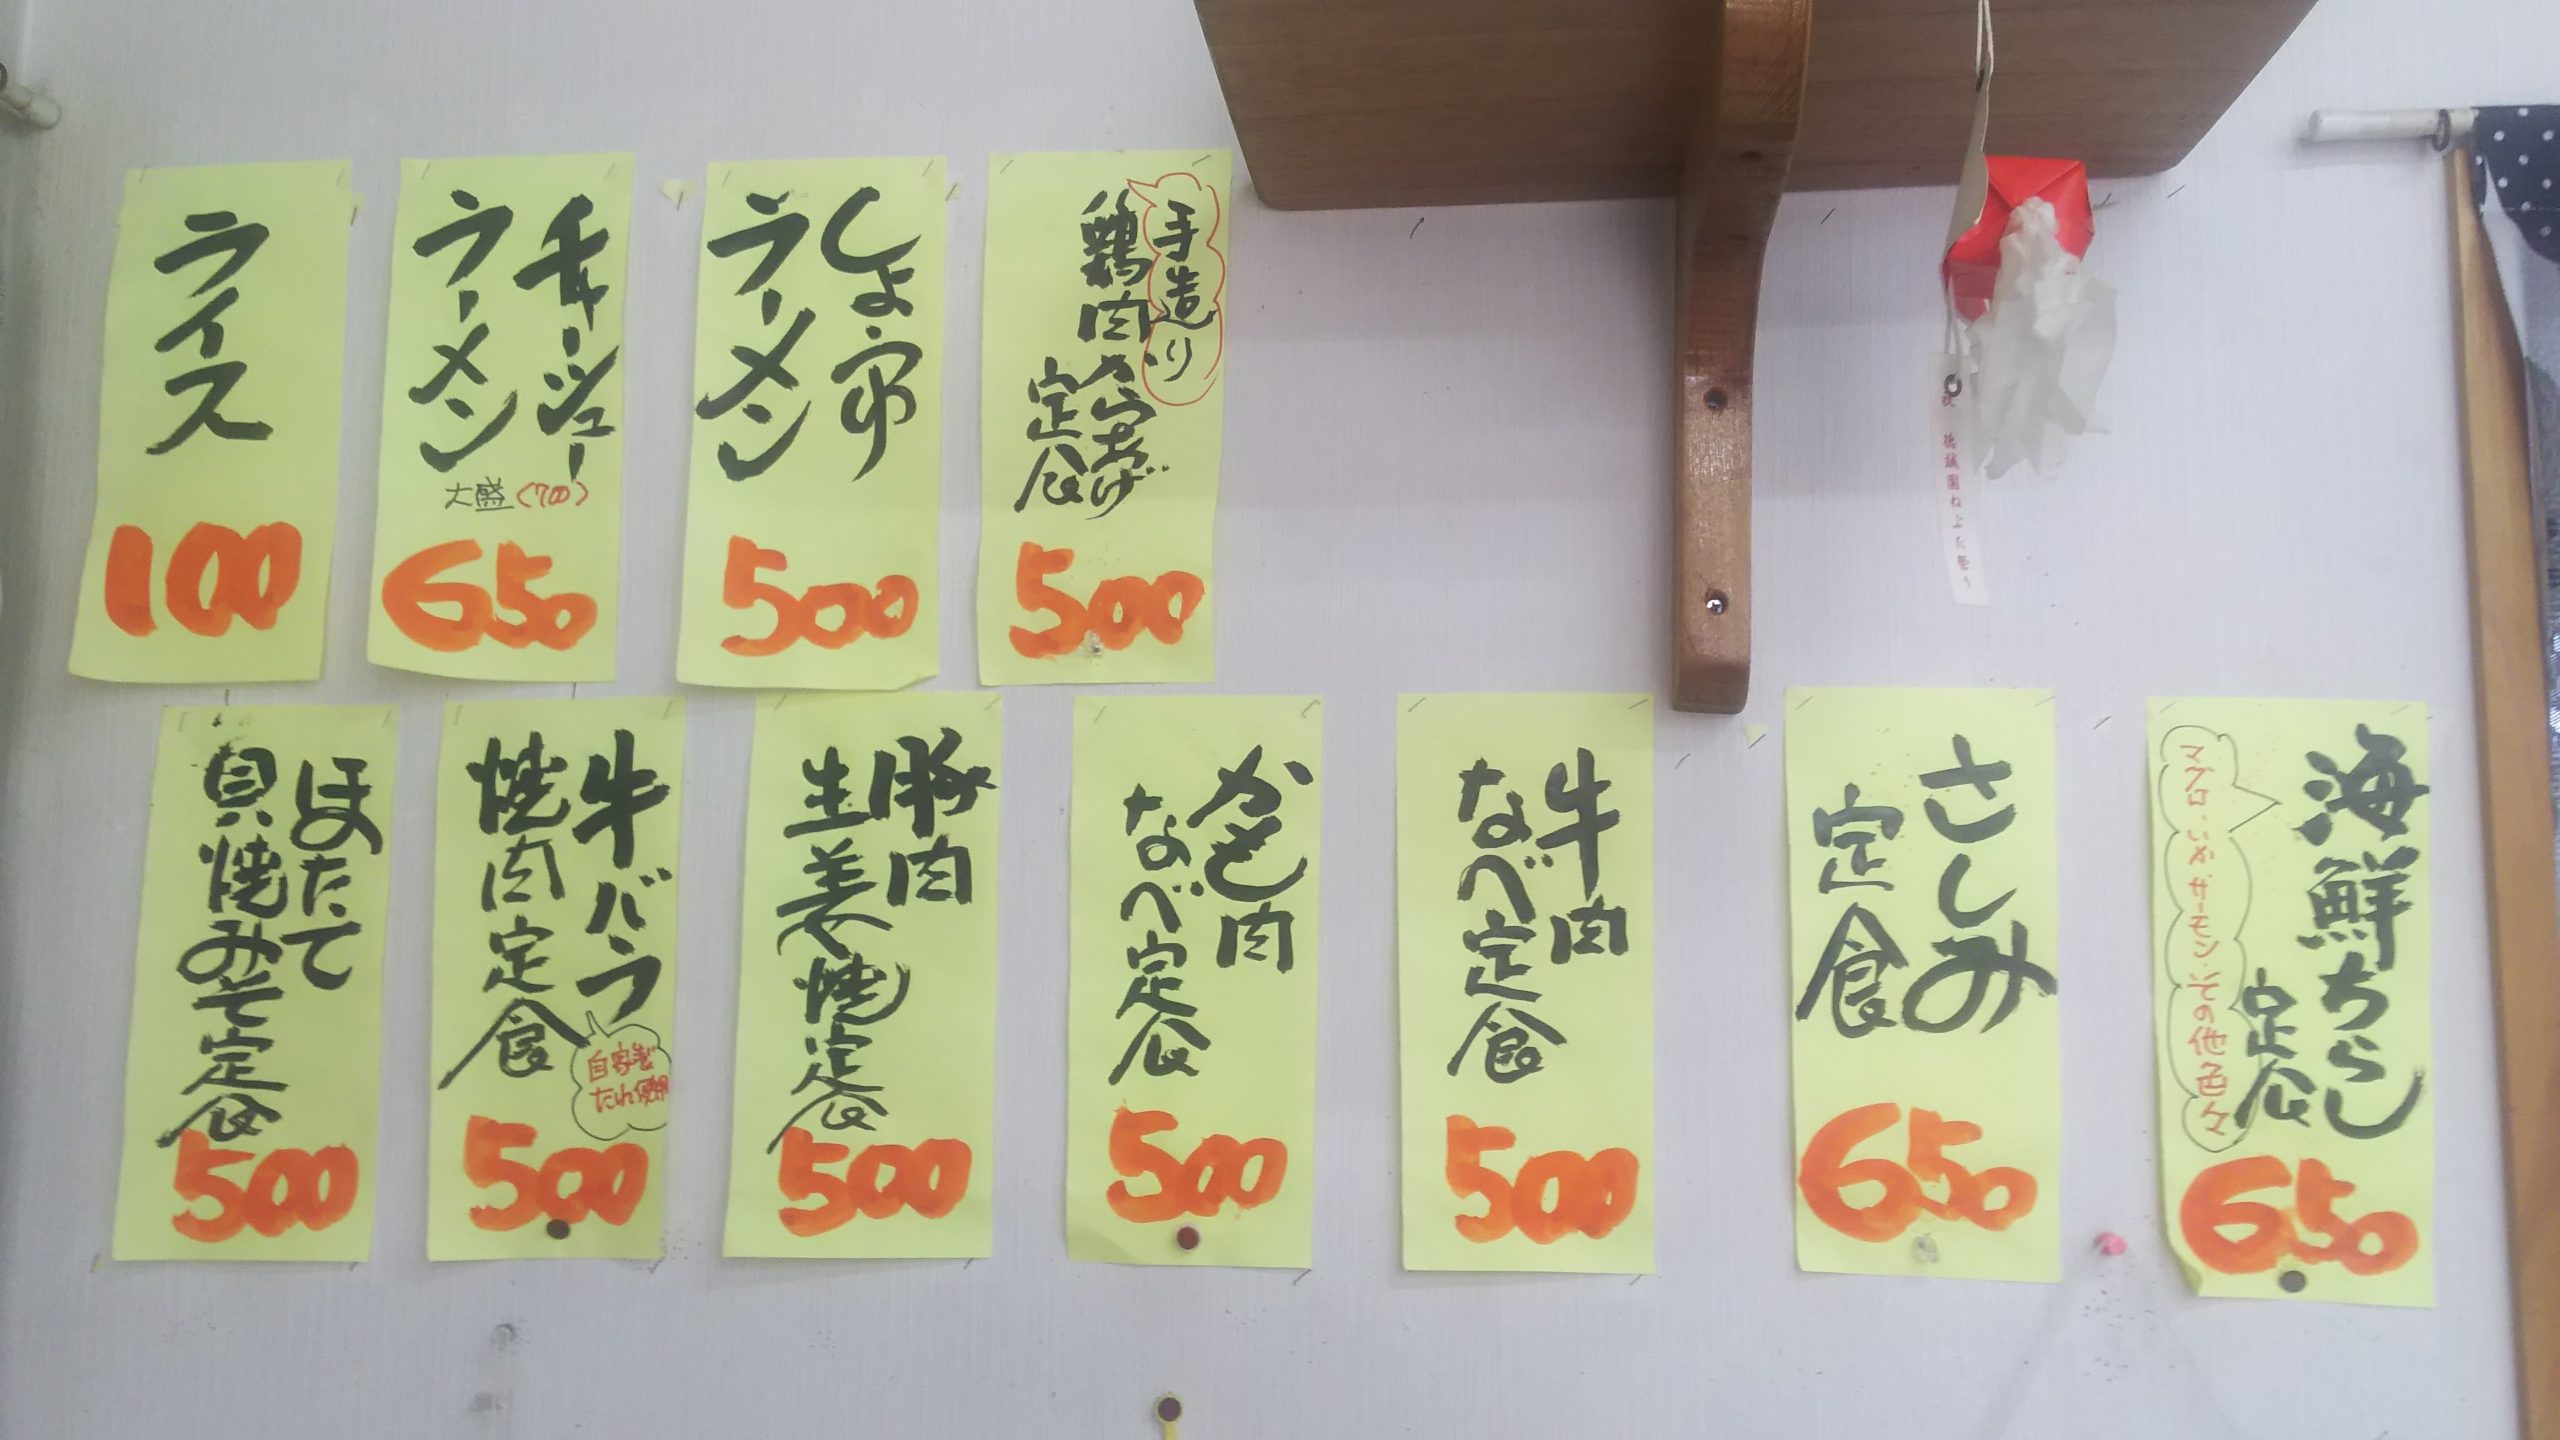 手造り
鶏肉からあげ
定食
500
しょうゆ
ラーメン
500
チャーシュー
ラーメン
大盛(700)
650
ライス
100
海鮮ちらし
定食
マグロ、いか、サーモン、その他色々
650
さしみ
定食
650
牛肉
なべ定食
500
かも肉
なべ定食
500
豚肉
生姜焼定食
500
牛バラ
焼肉定食
自家製
たれ使用
500
ほたて
貝焼みそ定食
500